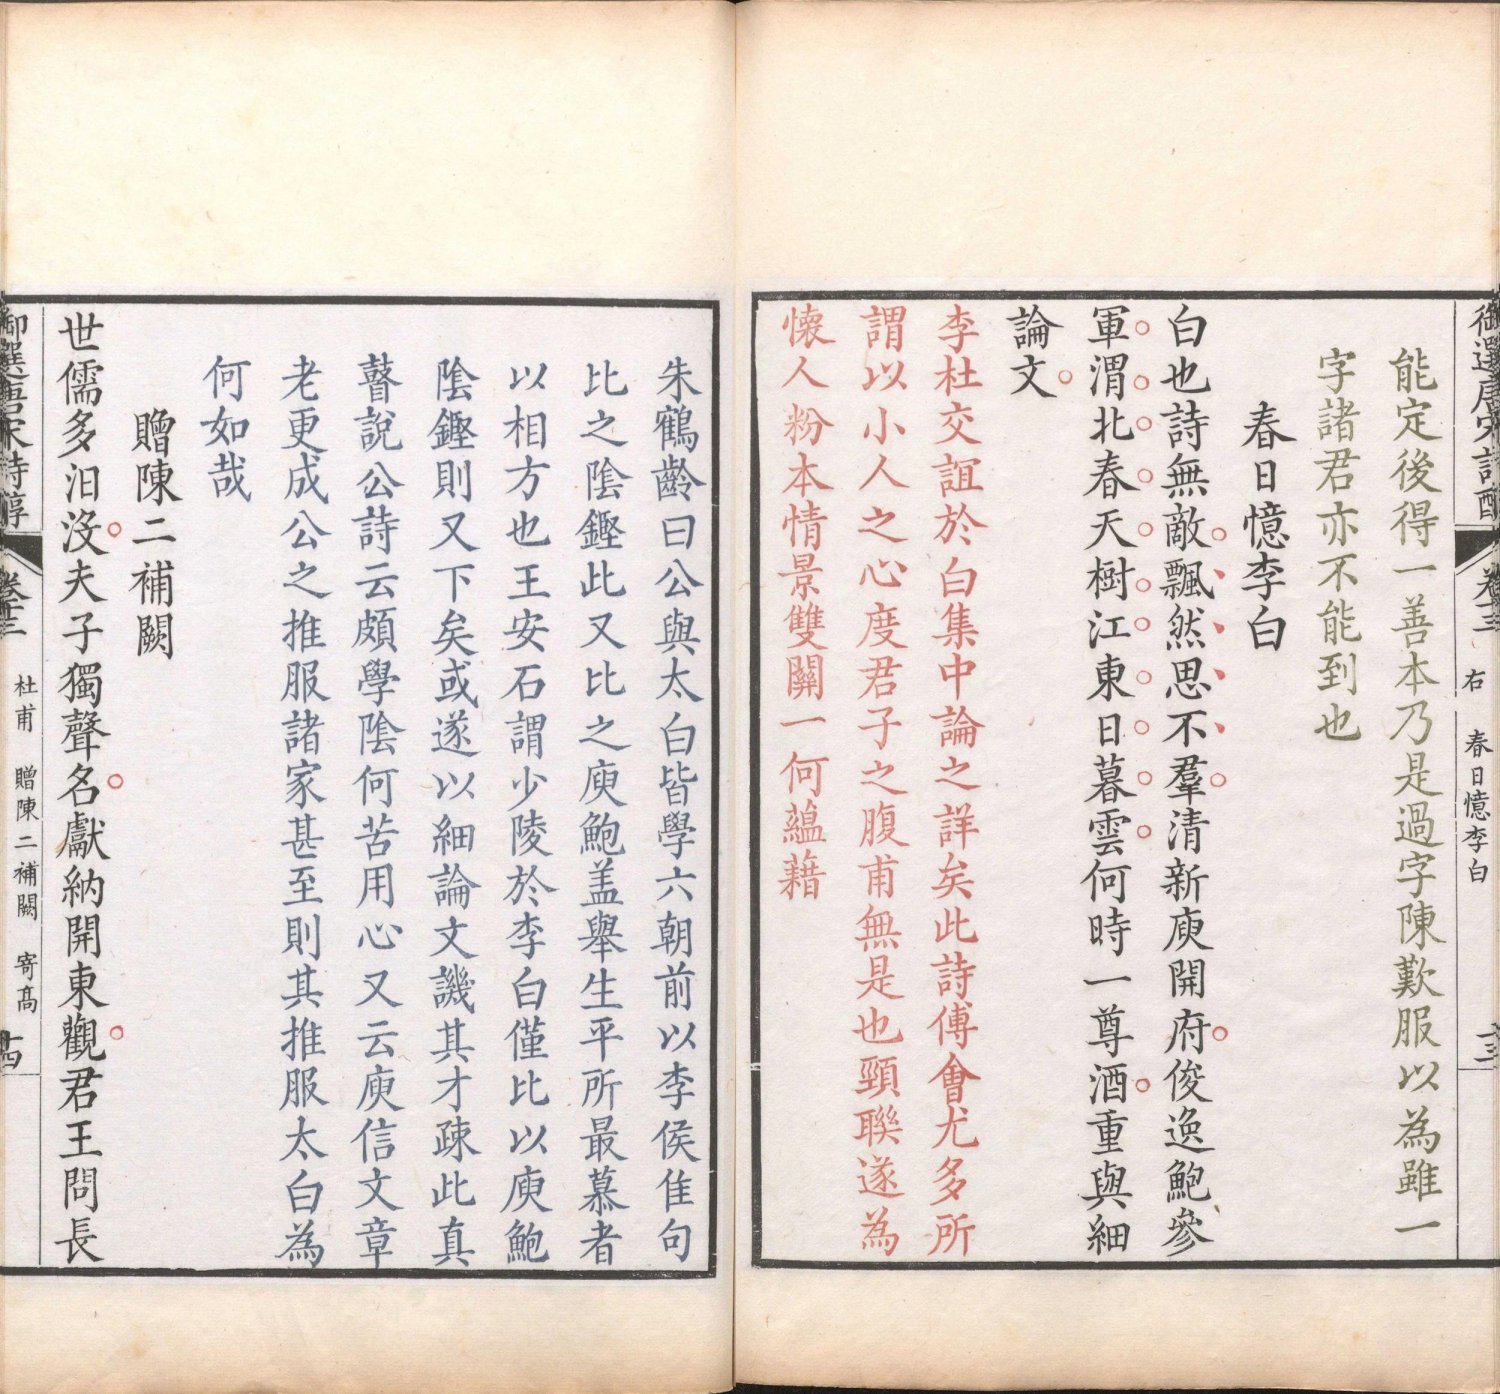 御選唐宋詩醇
卷十三
右
春日憶李白
十三
能定後得一善本乃是過字陳歎服以為雖一
字諸君亦不能到也
春日憶李白
白也詩無敵飄然思不羣清新庾開府俊逸鮑參
軍渭北春天樹江東日暮雲何時一尊酒重與細
論文
李杜交誼於白集中論之詳矣此詩傅會尤多所
謂以小人之心度君子之腹甫無是也頸聯遂為
懷人粉本情景雙關一何蘊藉
朱鶴齡曰公與太白皆學六朝前以李侯佳句
比之陰鏗此又比之庾鮑盖舉生平所最慕者
以相方也王安石謂少陵於李白僅比以庾鮑
陰鏗則又下矣或遂以細論文譏其才疎此真
瞽說公詩云頗學陰何苦用心又云庾信文章
老更成公之推服諸家甚至則其推服太白為
何如哉
贈陳二補闕
世儒多汩沒夫子獨聲名獻納開東觀君王問長
御選唐宋詩醇
卷十三
杜甫
贈陳二補闕
寄高
十四